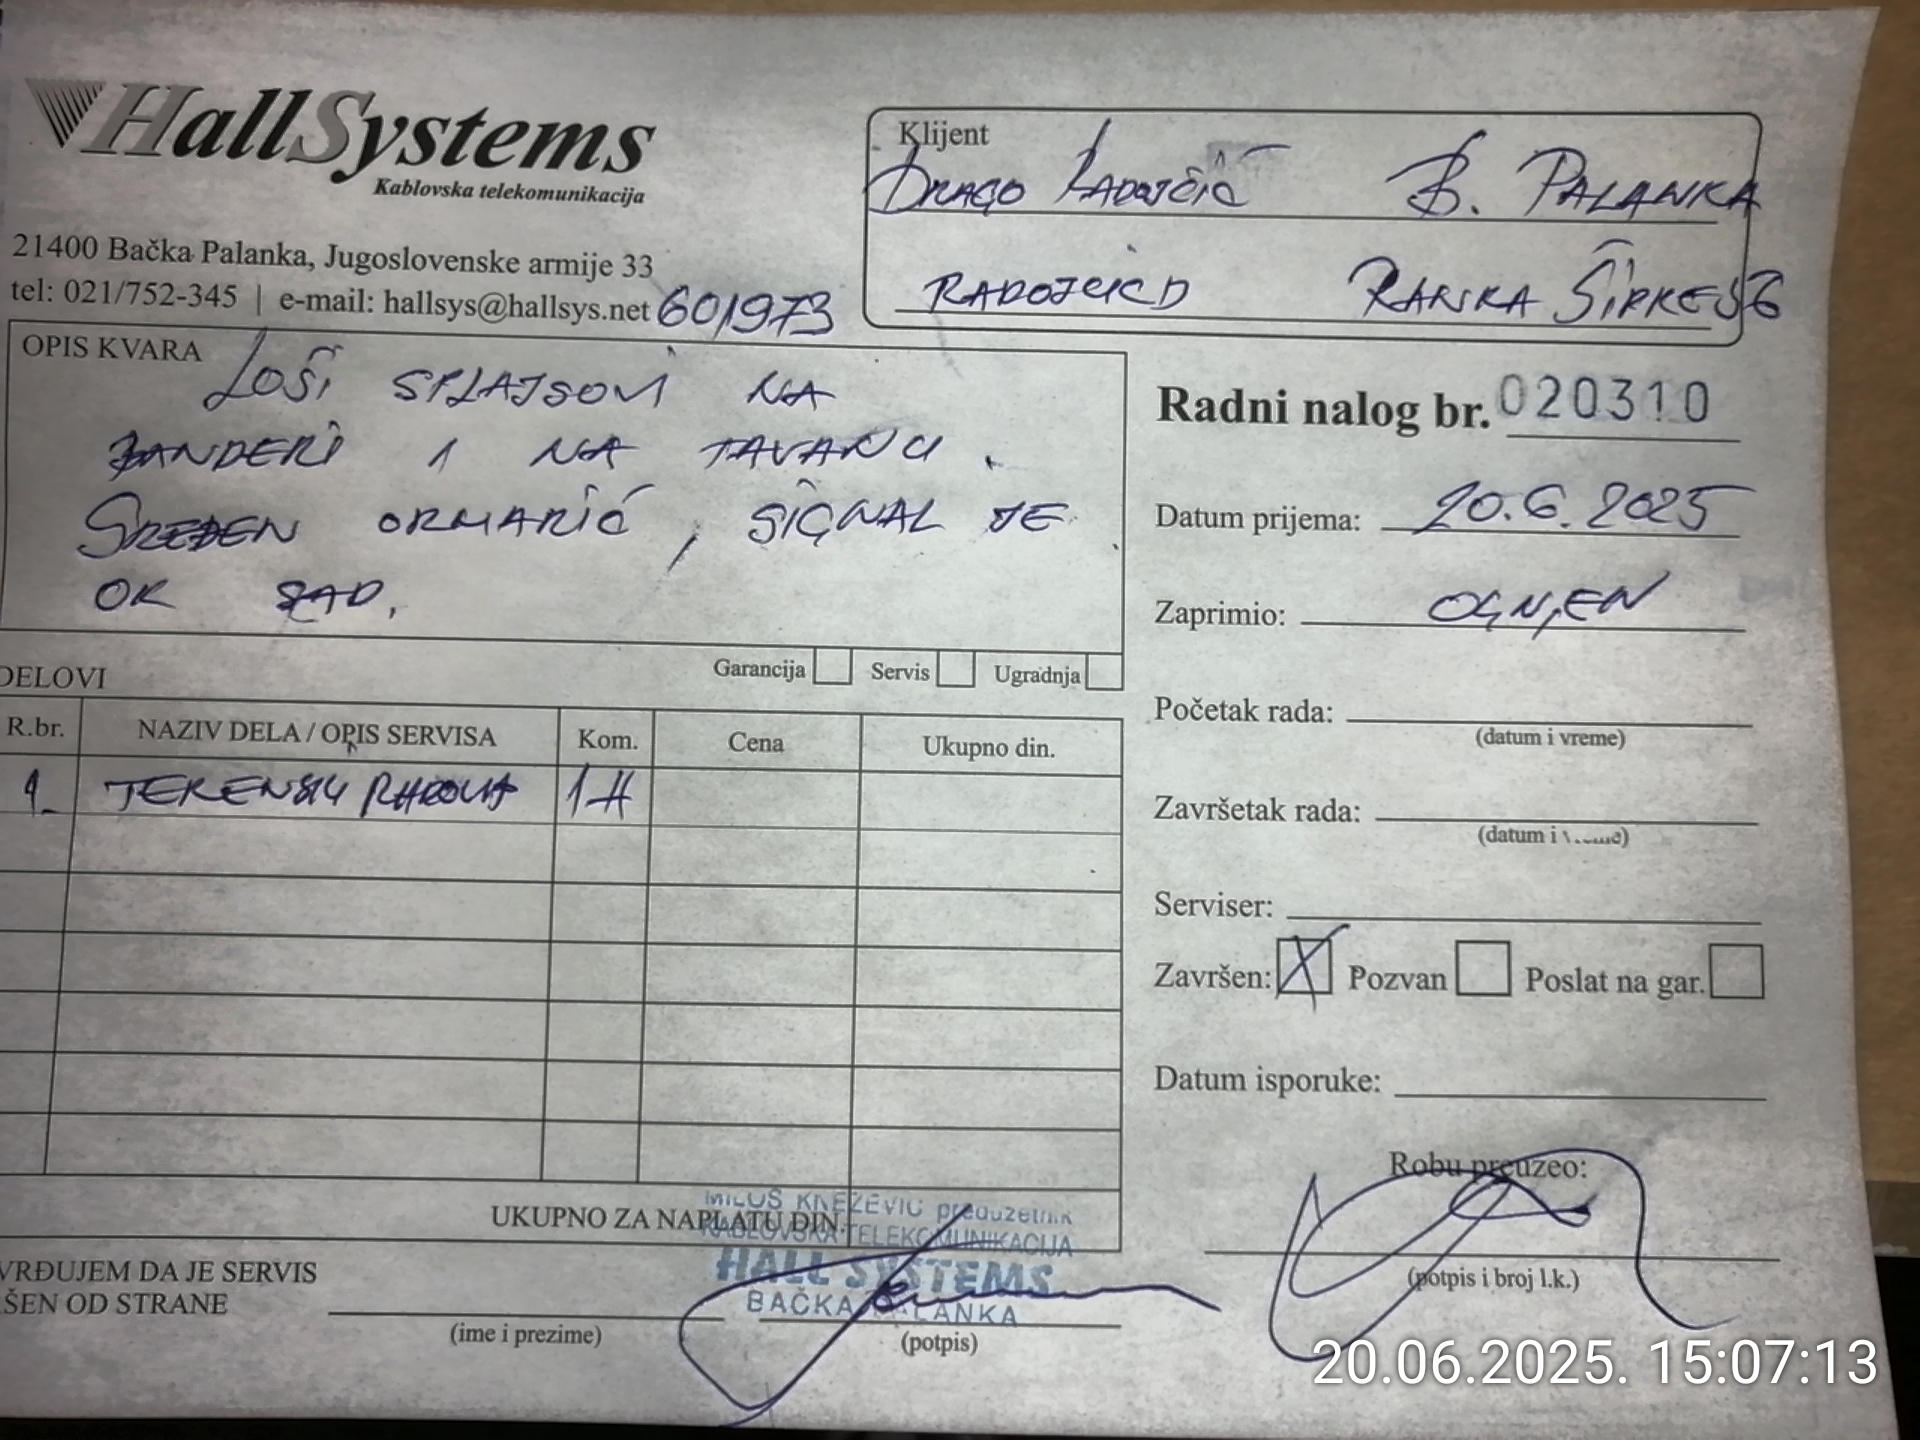 HallSystems
Kablovska telekomunikacija
21400 Bačka Palanka, Jugoslovenske armije 33
tel: 021/752-345 | e-mail: hallsys@hallsys.net 601973
Klijent
DRAGO RADOJČIĆ B. PALANKA
RADOJCICD RANKA ŠIPKE
OPIS KVARA
LOŠI SPLAJSOVI NA
BANDERI I NA TAVANU.
SREĐEN ORMARIĆ, SIGNAL JE
OK SAD.
Garancija Servis Ugradnja
DELOVI
R.br. NAZIV DELA / OPIS SERVISA Kom. Cena Ukupno din.
1. TERENSKI RADOVI 1H
UKUPNO ZA NAPLATU DIN.
VRĐUJEM DA JE SERVIS
ŠEN OD STRANE
(ime i prezime) (potpis)
MILOŠ KNEŽEVIĆ preduzetnik
KABLOVSKA TELEKOMUNIKACIJA
HALL SYSTEMS
BAČKA PALANKA
Radni nalog br. 020310
Datum prijema: 20.6.2025
Zaprimio: OGNJEN
Početak rada:
(datum i vreme)
Završetak rada:
(datum i vreme)
Serviser:
Završen: X Pozvan Poslat na gar.
Datum isporuke:
Robu preuzeo:
(potpis i broj l.k.)
20.06.2025. 15:07:13